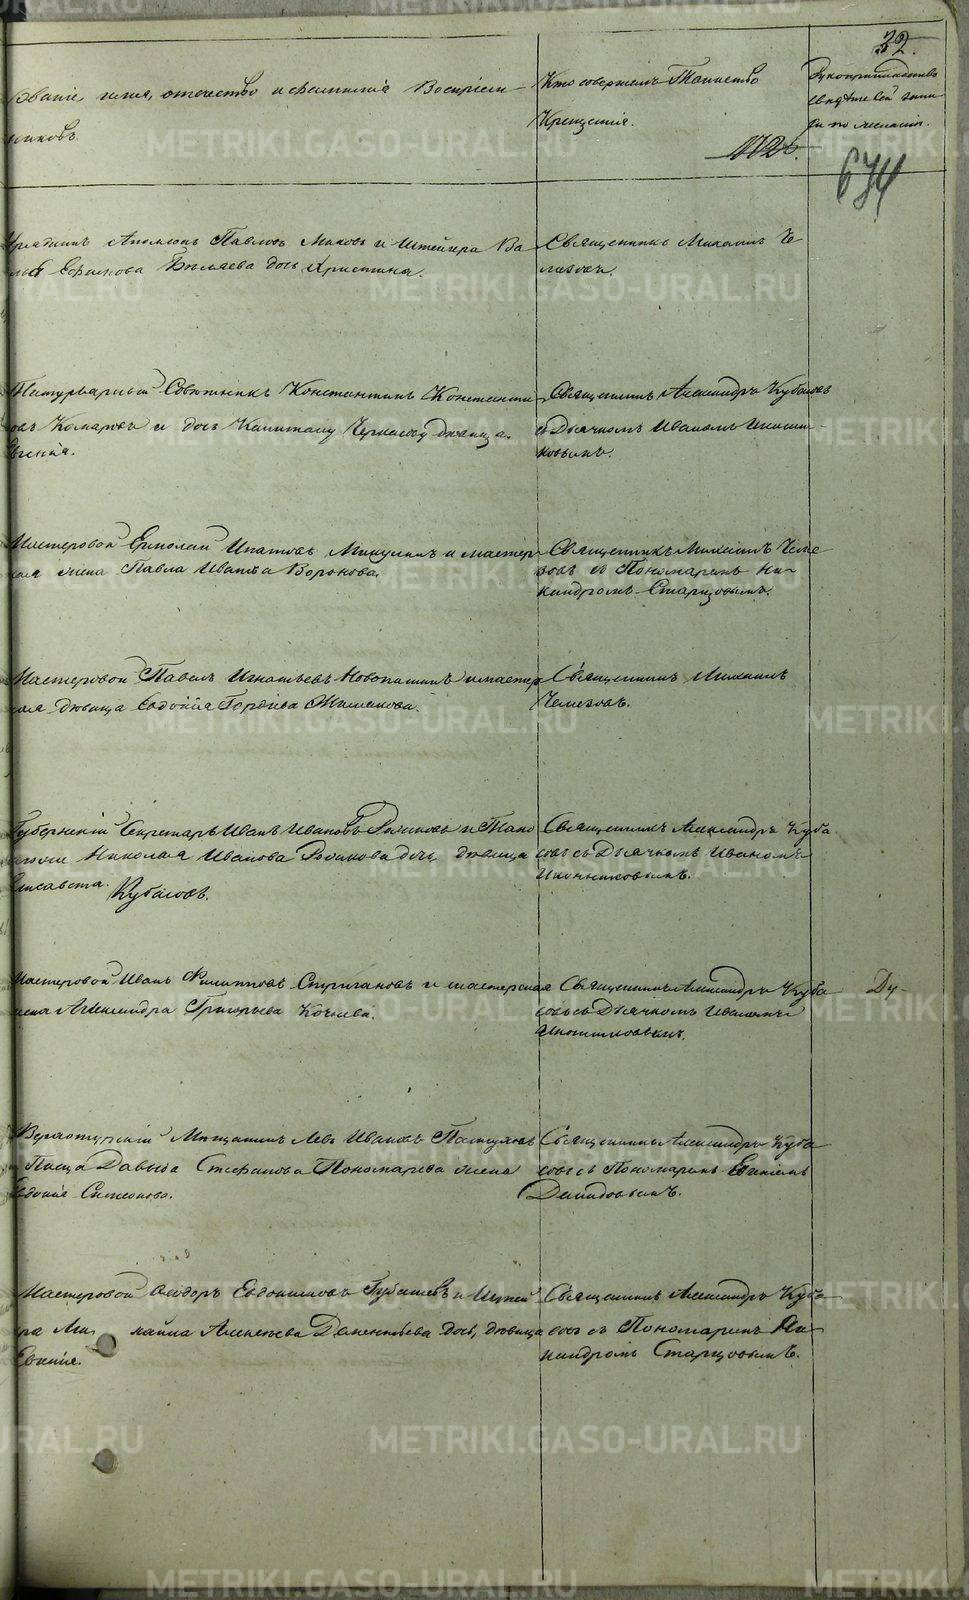 32.
Званіе, имя, отечество и фамилія Воспріем-
никовъ.
Кто совершалъ Таинство
Крещенія.
Рукоприкладство
свидѣтелей запи-
си по желанію.
172.
674
Урядникъ Павловъ и Штейгера Ва-
Бѣляева дочь Христина.
Священникъ Михаилъ Че-
мезовъ.
Титулярный Совѣтникъ Константинъ Константи-
овъ Комаровъ и дочь Капитана Черкасову дѣвица
Евгенія.
Священникъ Александръ Кубасовъ
съ Дьячкомъ Иваномъ Иконни-
ковымъ.
Мастеровой Ермолай Ипатовъ Микулинъ и мастер-
ская жена Павла Иванова Воронова.
Священникъ Михаилъ Чеме-
зовъ съ Пономаремъ Ни-
кандромъ Старцовымъ.
Мастеровой Павелъ Игнатьевъ Новопашинъ и мастер-
ская дѣвица Евдокія Гордѣева
Священникъ Михаилъ
Чемезовъ.
Губернскій Секретарь Иванъ Ивановъ и
Николая Иванова дочь дѣвица
Елисавета.
Кубасовъ.
Священникъ Александръ Куба-
совъ съ Дьячкомъ Иваномъ
Иконниковымъ.
Мастеровой Иванъ Филипповъ Стригановъ и мастерская
жена Александра Григорьева
Священникъ Александръ Куба-
совъ съ Дьячкомъ Иваномъ
Иконниковымъ.
Ду-
Верхотурскій Мѣщанинъ Левъ Ивановъ Пастуховъ
Писца Давыда Стефанова Пономарева жена
Евдокія Симеонова.
Священникъ Александръ Куба-
совъ съ Пономаремъ Евгеніемъ
Демидовымъ.
Мастеровой Ѳеодоръ Евдокимовъ и Штей-
ра Ми хайла Алексѣева Дементьева дочь, дѣвица
Евгенія.
Священникъ Александръ Куба-
совъ съ Пономаремъ Ни-
кандромъ Старцовымъ.
METRIKI.GASO-URAL.RU